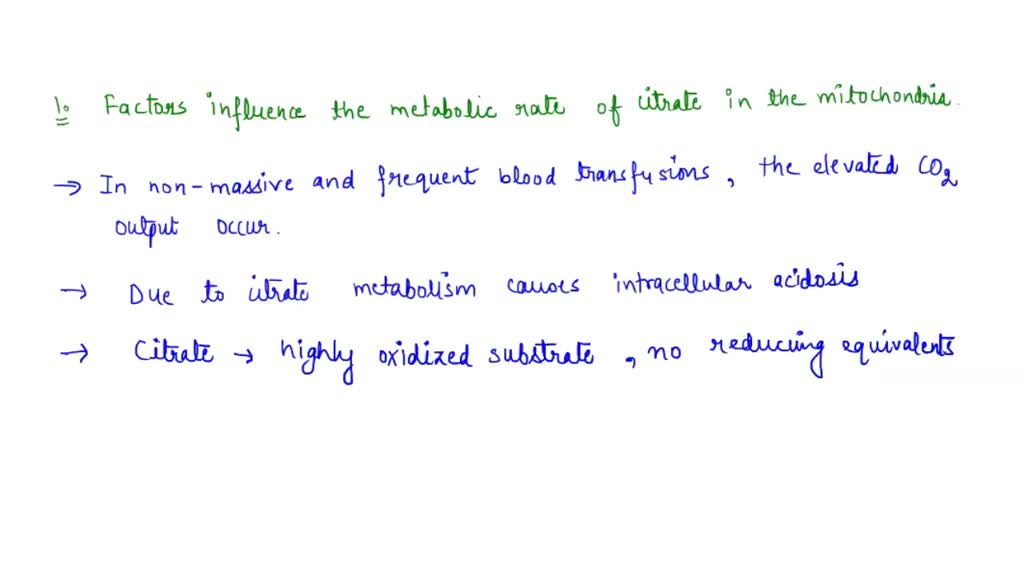 1. Factors influence the metabolic rate of citrate in the mitochondria.
→ In non-massive and frequent blood transfusions, the elevated CO2
output occur.
→ Due to citrate metabolism causes intracellular acidosis
→ Citrate → highly oxidized substrate, no reducing equivalents